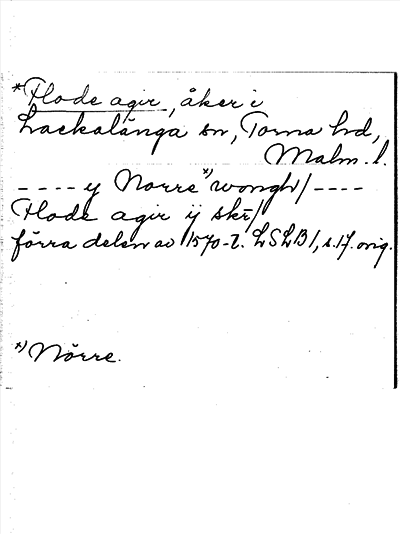 *Flode agir, åker i
Lackalånga sn, Torna hd,
Malm. l.
---- y Norre*) wongh/----
Flode agir ij skr/
förra delen av 1570-t. LSLB1, s.17. orig.
*) Nörre.